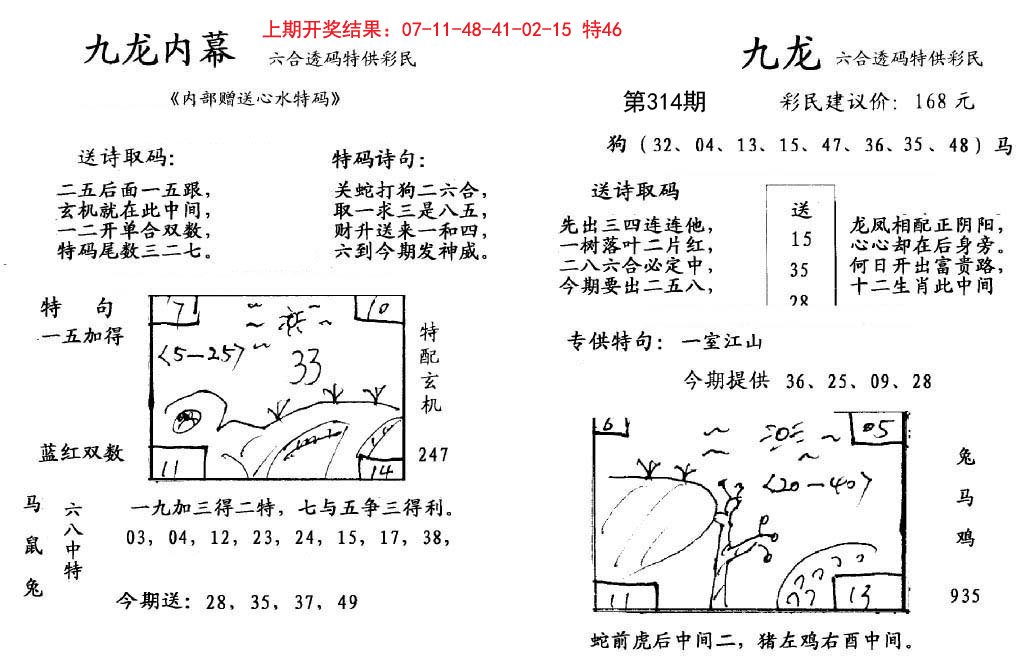 上期开奖结果：07-11-48-41-02-15 特46
九龙内幕 六合透码特供彩民
《内部赠送心水特码》
送诗取码：
二五后面一五跟，
玄机就在此中间，
一二开单合双数，
特码尾数三二七。
特码诗句：
关蛇打狗二六合，
取一求三是八五，
财升送来一和四，
六到今期发神威。
特 句
一五加得
蓝红双数
17
10
〈5－25〉
33
11
14
特配玄机
247
马鼠兔
六八中特
一九加三得二特，七与五争三得利。
03，04，12，23，24，15，17，38，
今期送：28，35，37，49
九龙 六合透码特供彩民
第314期 彩民建议价：168元
狗（32、04、13、15、47、36、35、48）马
送诗取码
先出三四连连他，
一树落叶二片红，
二八六合必定中，
今期要出二五八，
送
15
35
28
龙凤相配正阴阳，
心心却在后身旁。
何日开出富贵路，
十二生肖此中间
专供特句：一室江山
今期提供 36、25、09、28
6
05
〈20－40〉
11
13
兔
马
鸡
935
蛇前虎后中间二，猪左鸡右酉中间。